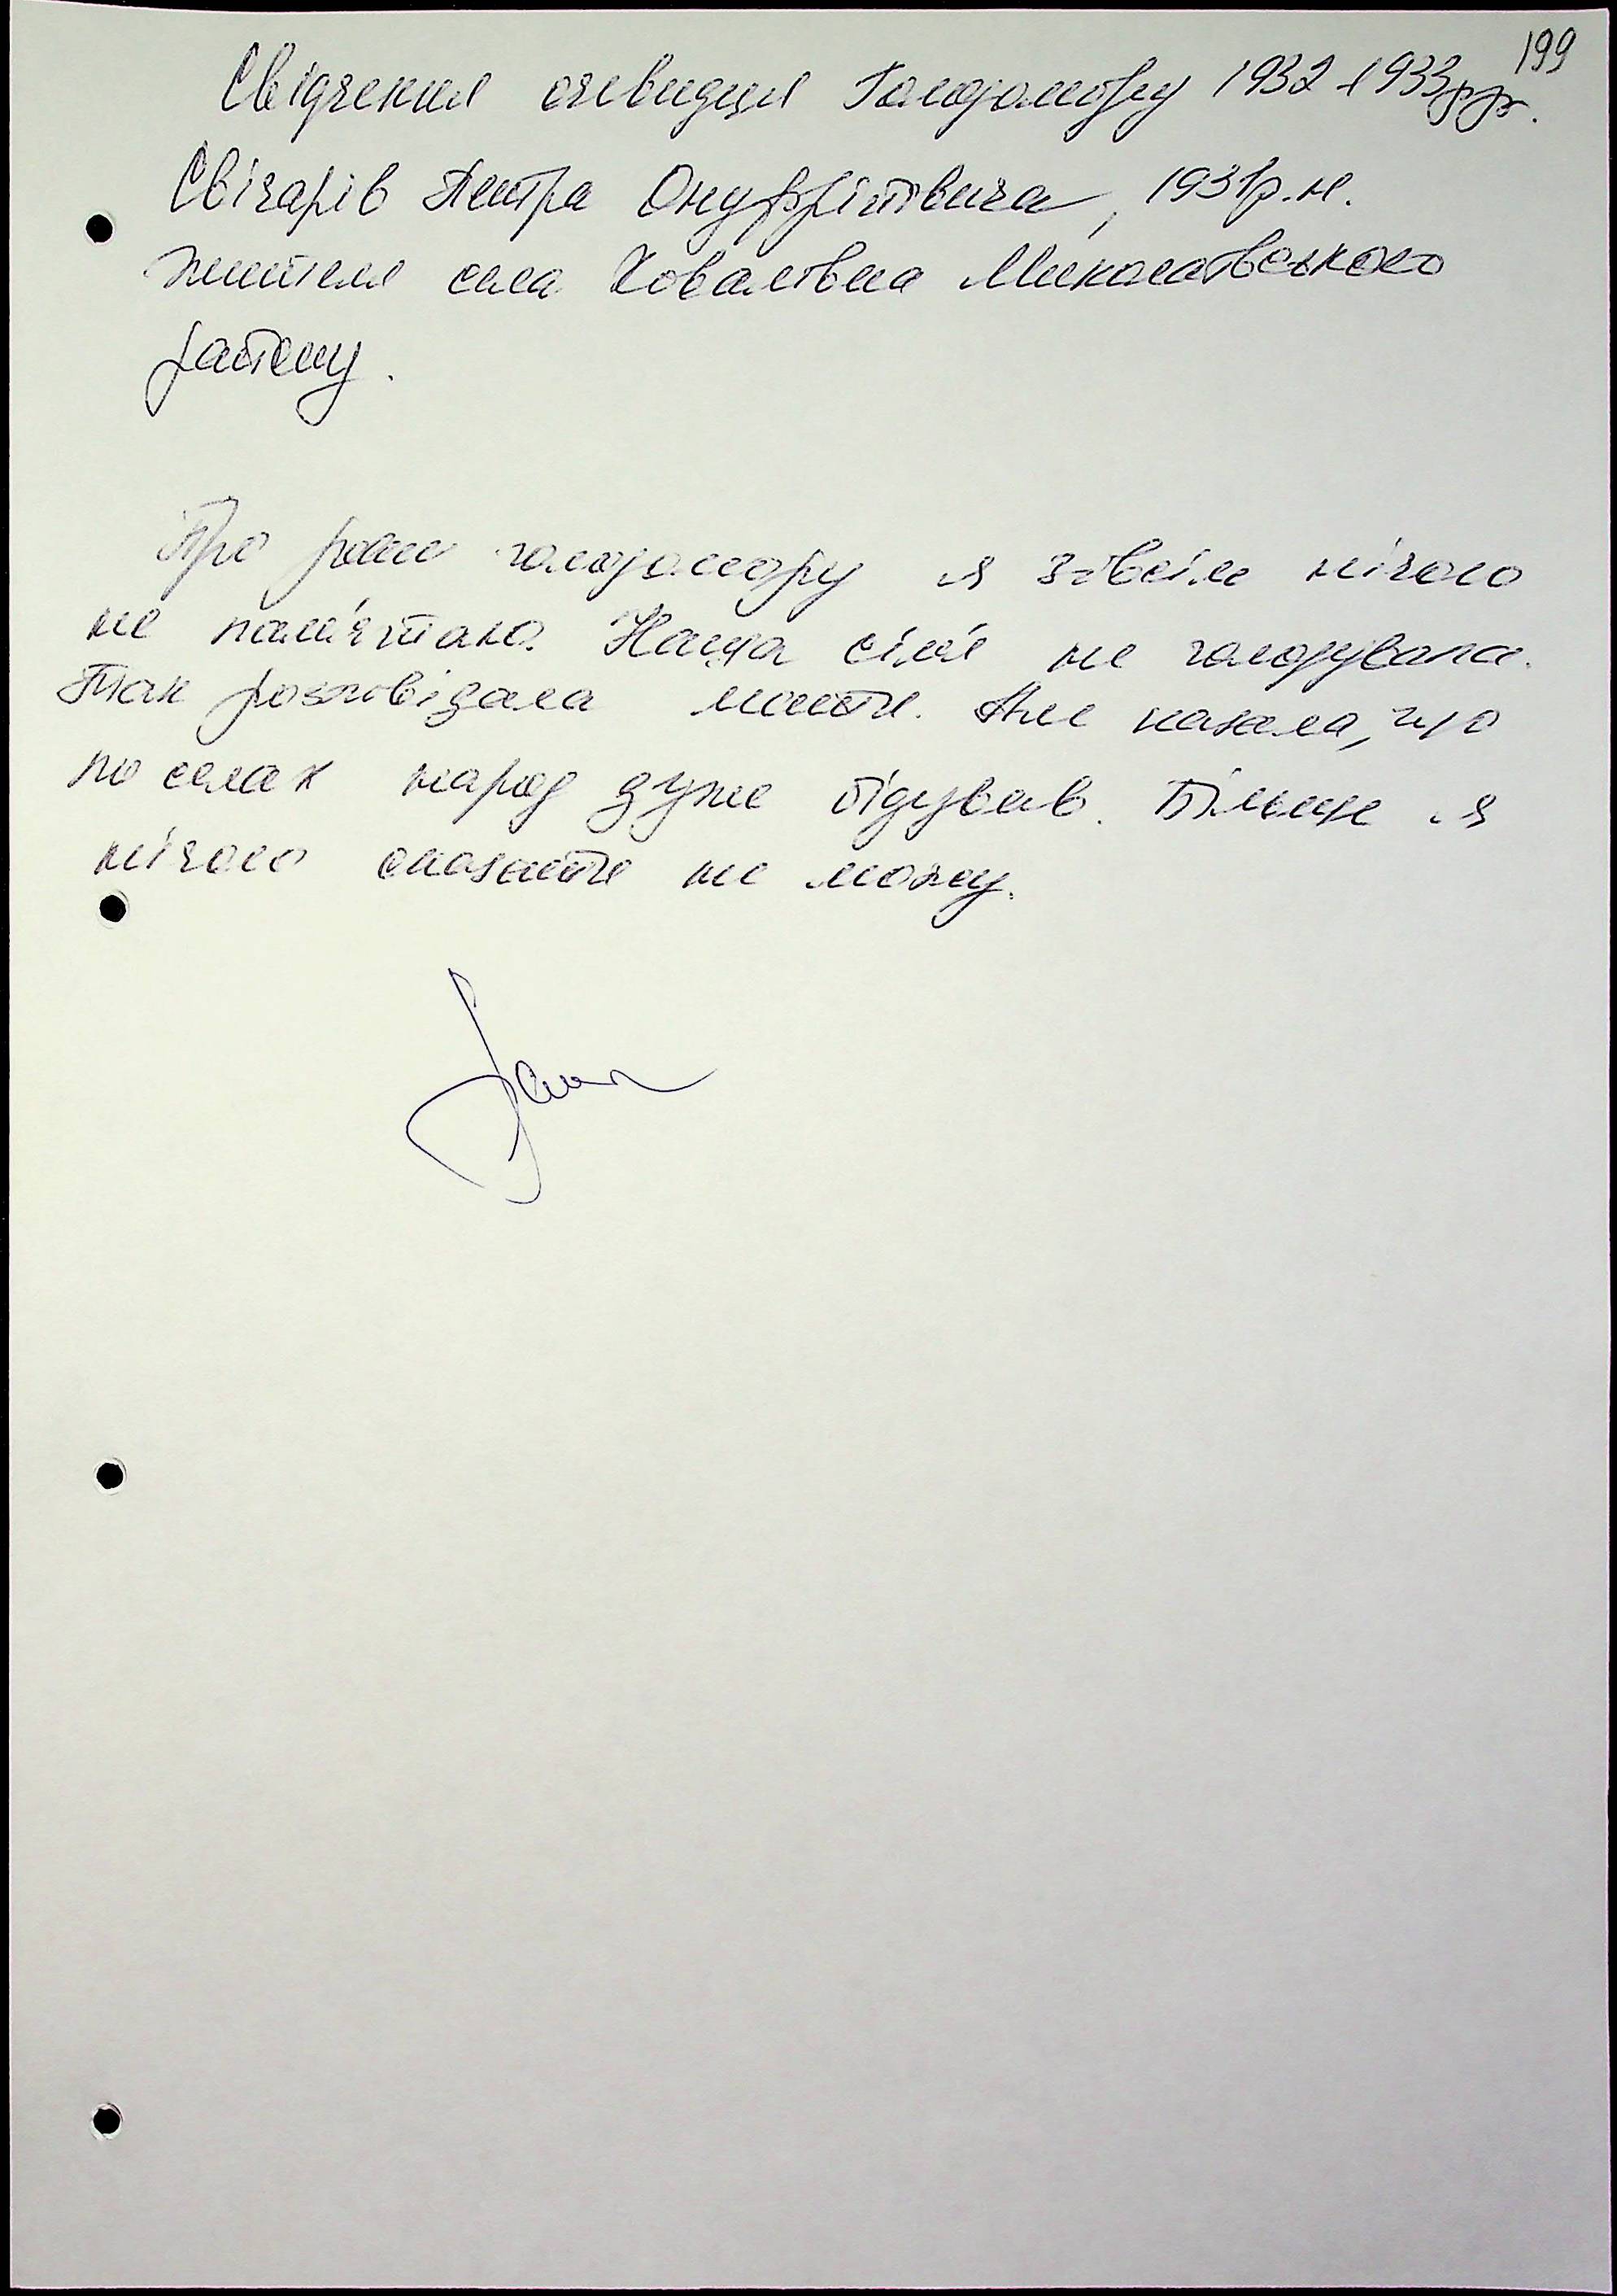 199
Свідчення очевидця Голодомору 1932-1933рр.
Свічарів Петра Онуфрійовича, 1931р.н.
жителя села Ковалівка Миколаївського
району.
Про роки голодомору я зовсім нічого
не пам'ятаю. Наша сім'я не голодувала.
Так розповідала мати. Але казала, що
по селах народ дуже бідував. Більше я
нічого сказати не можу.